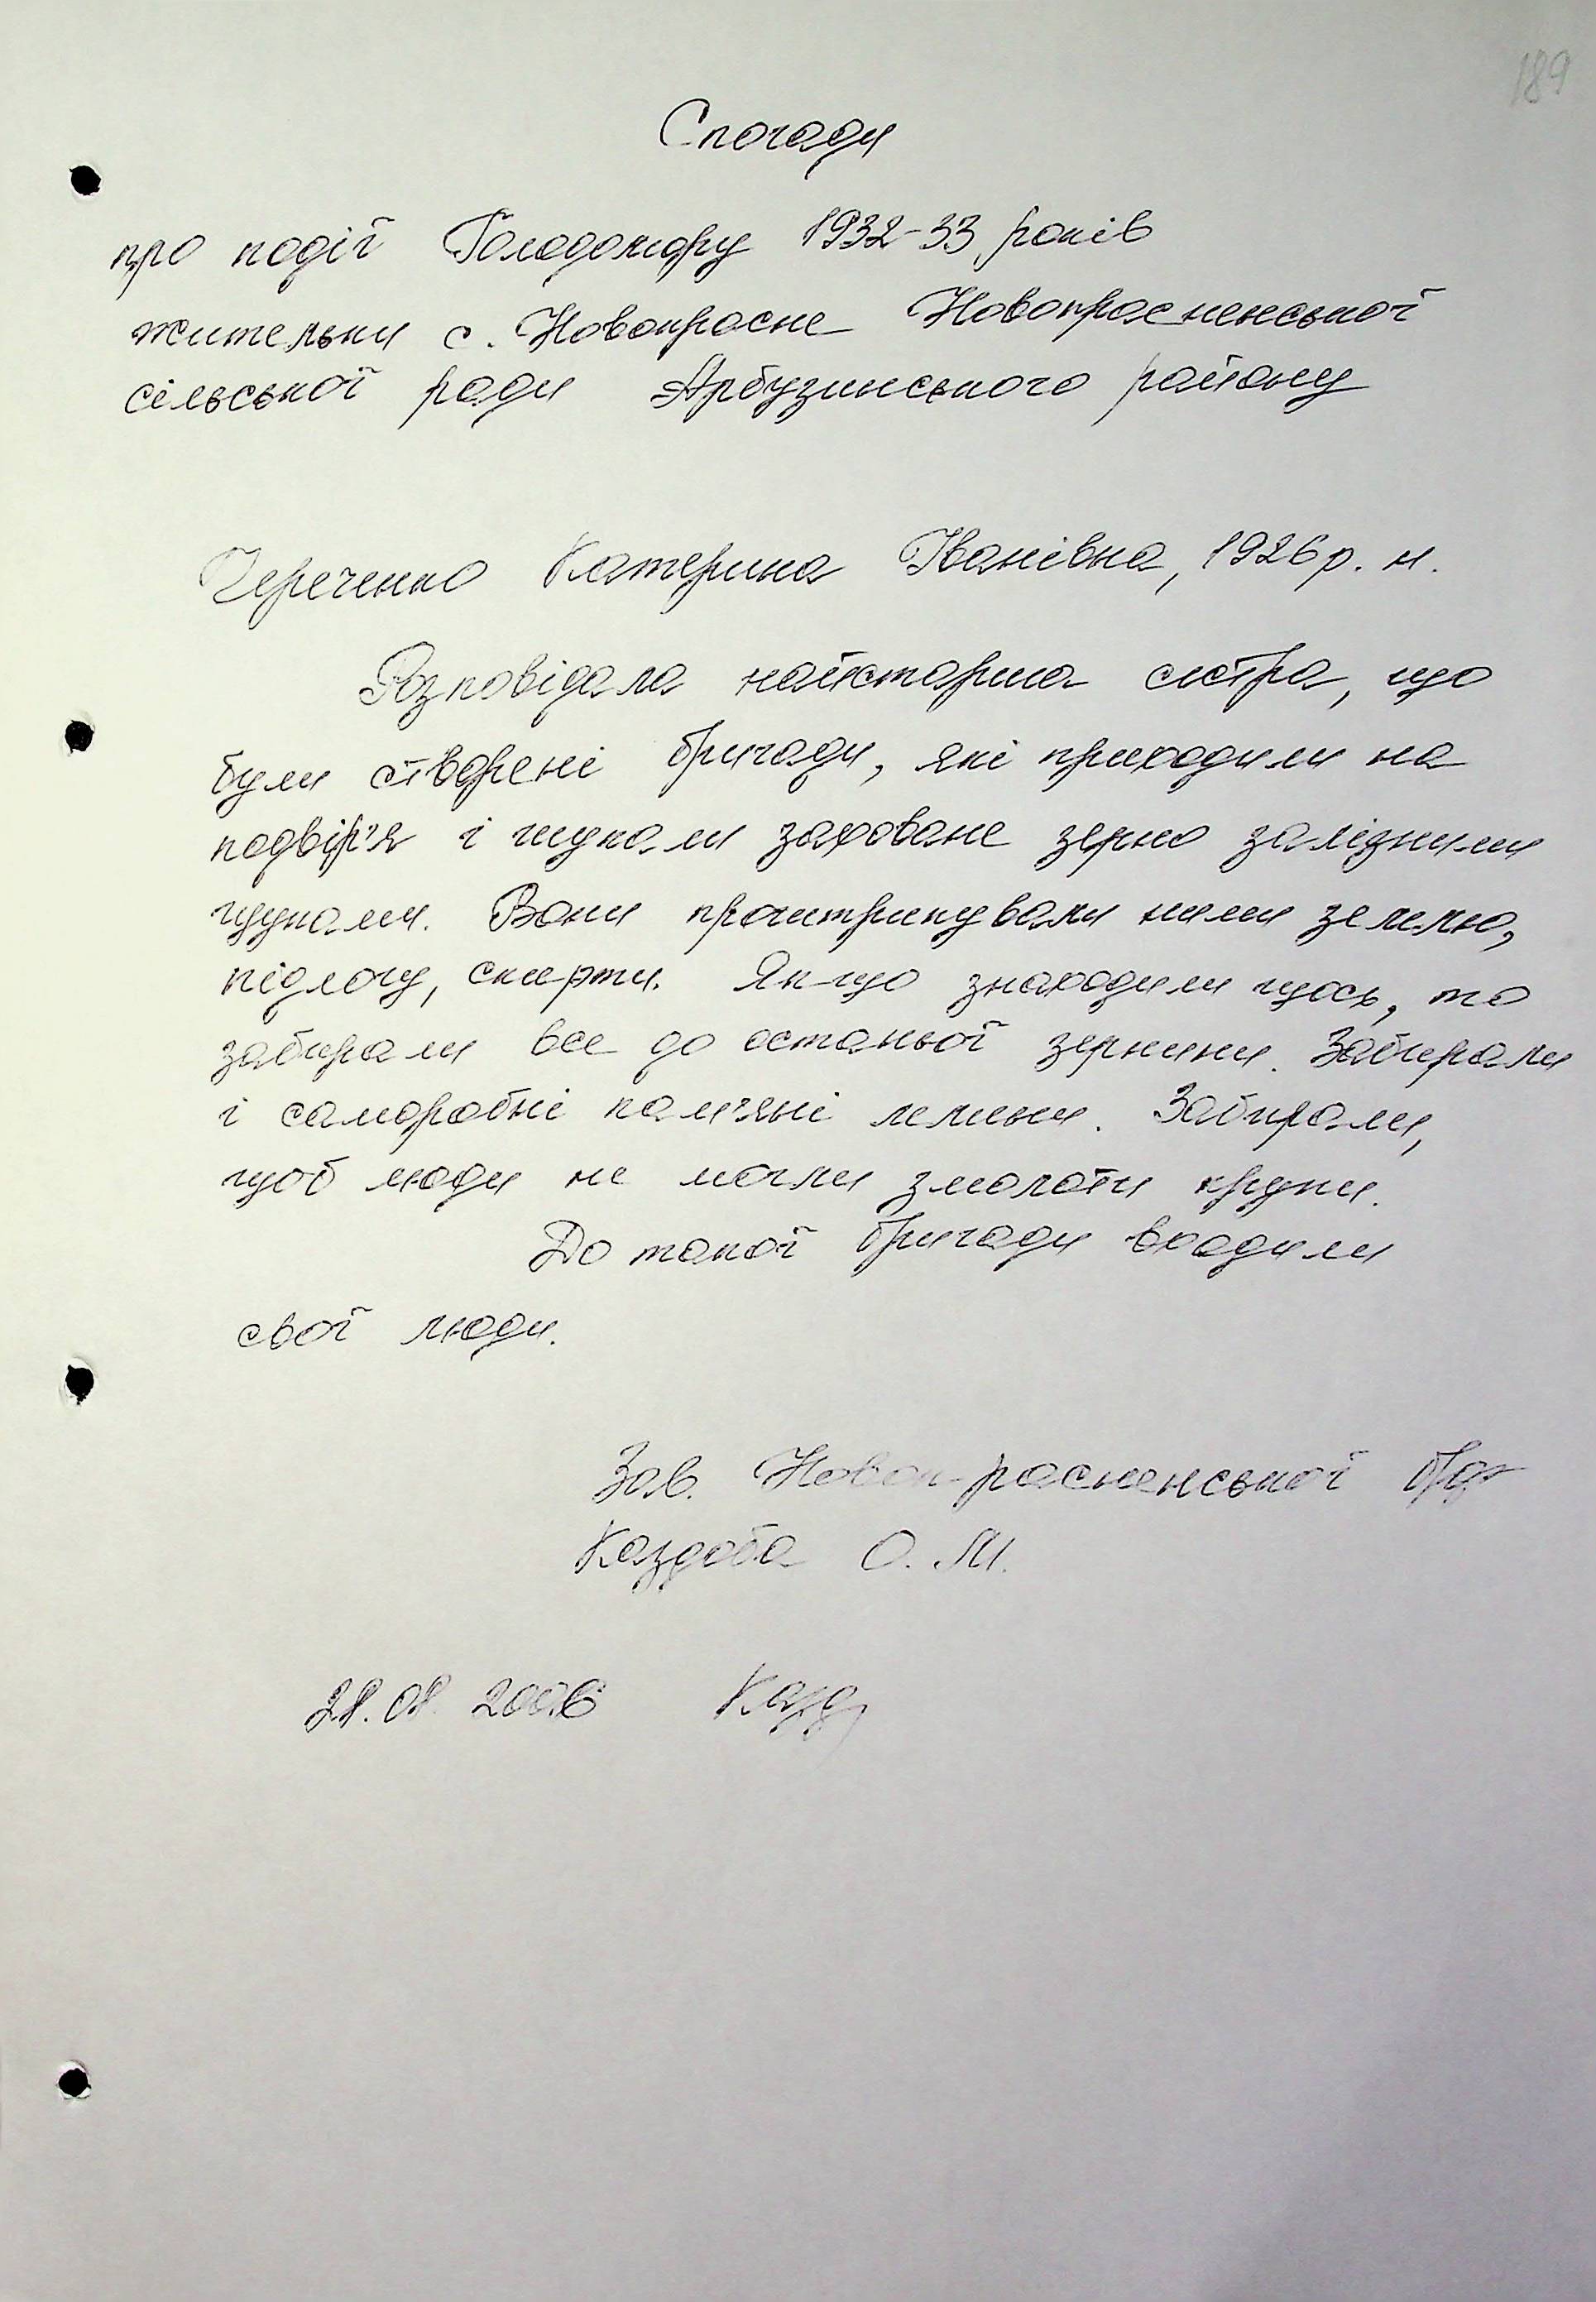 189
Спогади
про події Голодомору 1932-33 років
жительки с. Новокрасне Новокрасненської
сільської ради Арбузинського району
Череченко Катерина Іванівна, 1926 р. н.
Розповідала найстарша сестра, що
були створені бригади, які приходили на
подвір'я і шукали заховане зерно залізними
щупами. Вони проштрикували ними землю,
підлогу, скирти. Якщо знаходили щось, то
забирали все до останьої зернини. Забирали
і саморобні кам'яні млини. Забирали,
щоб люди не могли змолоти крупи.
До такої бригади входили
свої люди.
Зав. Новокрасненської б/ф
Каздоба О. М.
28.08 2006 Казд